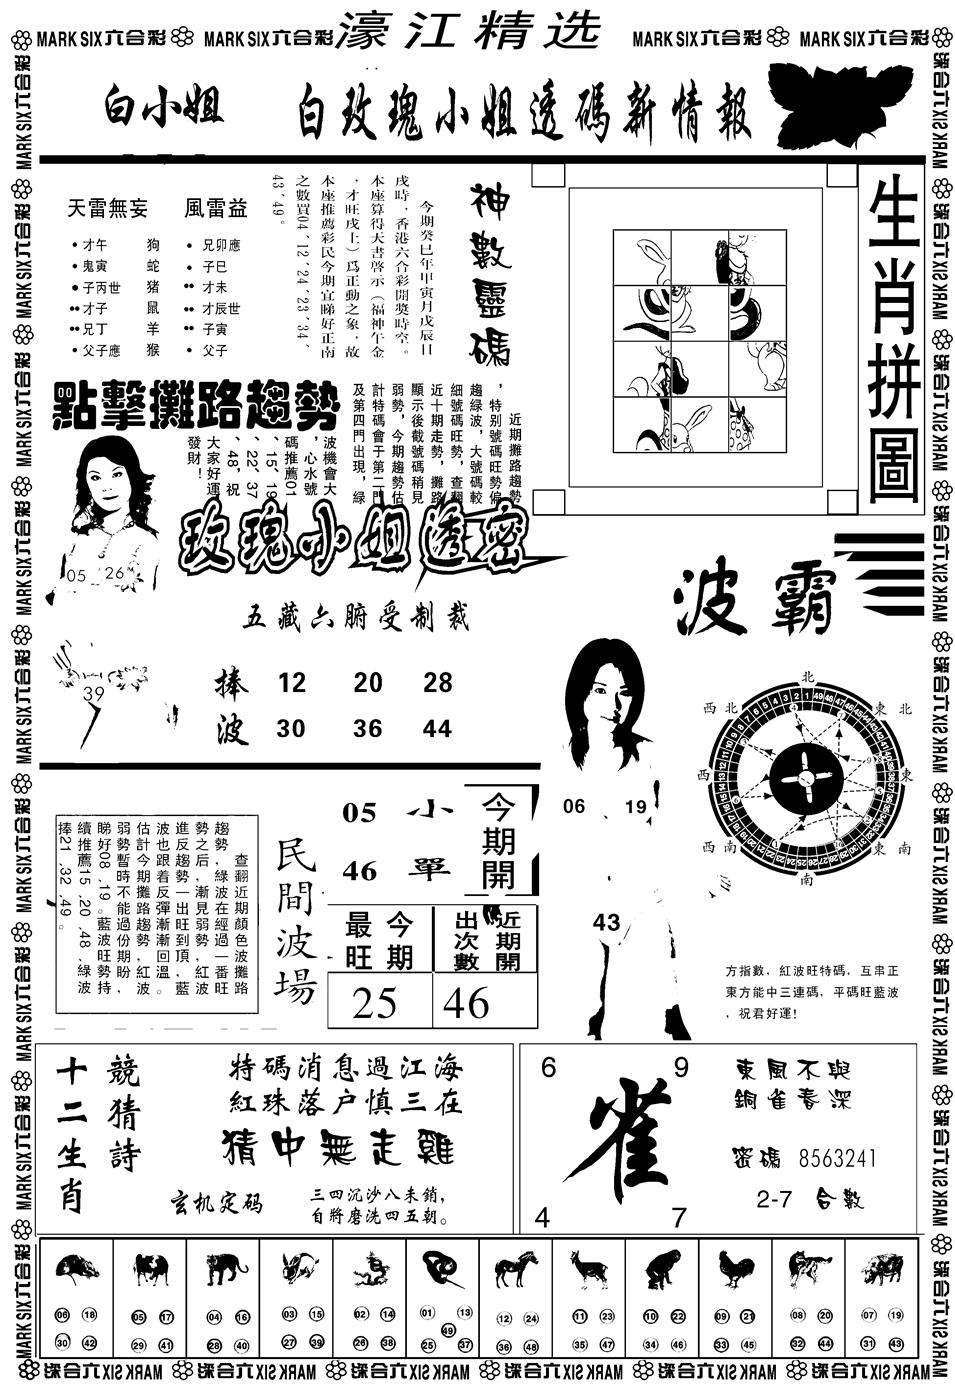 MARK SIX六合彩 MARK SIX六合彩 濠江精选 MARK SIX六合彩 MARK SIX六合彩
白小姐 白玫瑰小姐透碼新情報
天雷無妄 風雷益
才午 狗 兄卯應
鬼寅 蛇 子巳
子丙世 猪 才未
才子 鼠 才辰世
兄丁 羊 子寅
父子應 猴 父子
神數靈碼
今期癸巳年甲寅月戊辰日
戌時，香港六合彩開獎時空。
本座算得天書啓示（福神午金
，才旺戌上）爲正動之象，故
本座推薦彩民今期宜睇好正南
之數買04、12、24、23、34、
43、49。
生肖拼圖
點擊攤路趨勢
近期攤路趨勢
，特别號碼旺勢偏
趨緑波，大號碼較
細號碼旺勢，查翻
近十期走勢，攤路
顯示後截號碼稍見
弱勢，今期趨勢估
計特碼會于第二門
及第四門出現，緑
波機會大
，心水號
碼推薦01
、15、19
、22、37
、48，祝
大家好運
發財！
05 26
39
玫瑰小姐透密
五藏六腑受制裁
捧 12 20 28
波 30 36 44
波霸
06 19
43
北
西北 東北
西 東
西南 東南
南
方指數，紅波旺特碼，互串正
東方能中三連碼，平碼旺藍波
，祝君好運！
查翻近期顔色波攤路
趨勢，緑波在經過一番旺
勢之后，漸見弱勢，紅波
進反趨勢一出旺到頂，藍
波也跟着反彈漸漸回溫。
估計今期攤路趨勢紅波
弱勢暫時不能過份期盼，
睇好08、19。藍波旺勢持
續推薦15、20、48、緑波
捧21、32、49。
民間波場
05 小
46 單
今期開
今期最旺
近期開出次數
25 46
十二生肖
競猜詩
特碼消息過江海
紅珠落户慎三在
猜中無走雞
玄机定码
三四沉沙八未銷，
自將磨洗四五朝。
6 9
雀
4 7
東風不與
銅雀春深
密碼 8563241
2-7 合數
06 18 05 17 04 16 03 15 02 14 01 13 12 24 11 23 10 22 09 21 08 20 07 19
49
30 42 29 41 28 40 27 39 26 38 25 37 36 48 35 47 34 46 33 45 32 44 31 43